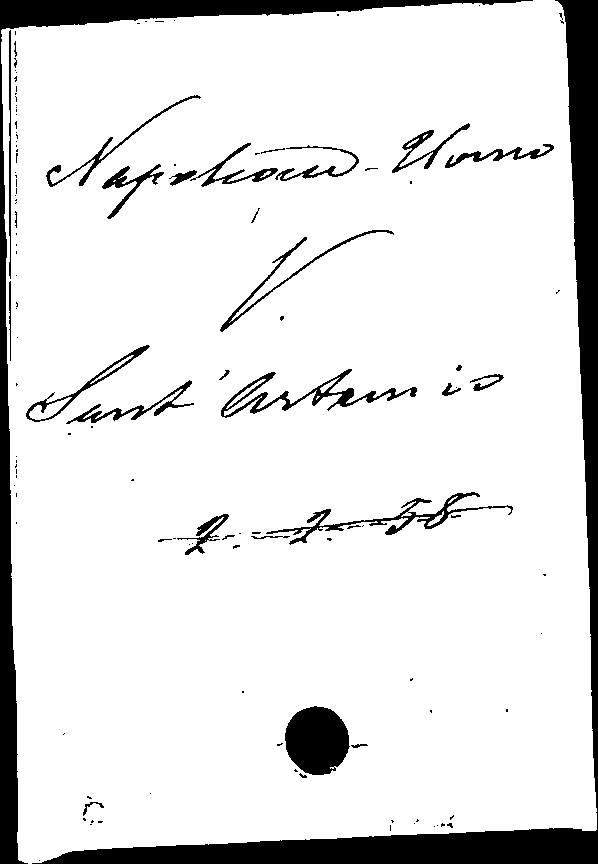 Napoleone-Uomo
V.
Sant'Artemio
2. 2. 58